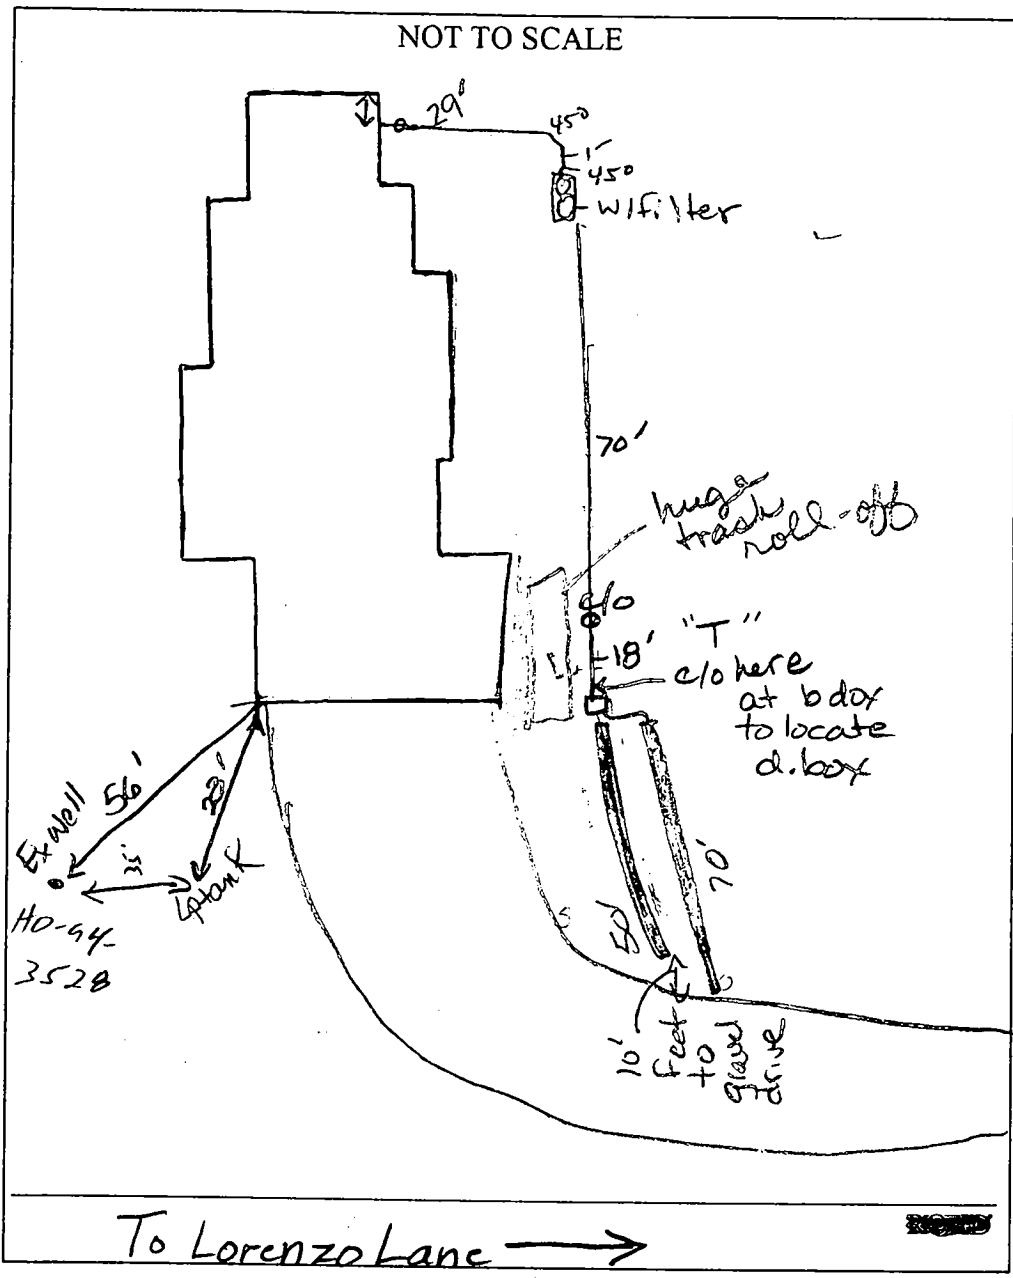 NOT TO SCALE
29'
45°
1'
45°
w/filter
70'
huge
trash
roll-off
c/o
18'
"T"
c/o here
at bdox
to locate
d.box
56'
Ex Well
35'
HO-94-
3528
50'
70'
10'
feet
to
gravel
drive
To Lorenzo Lane